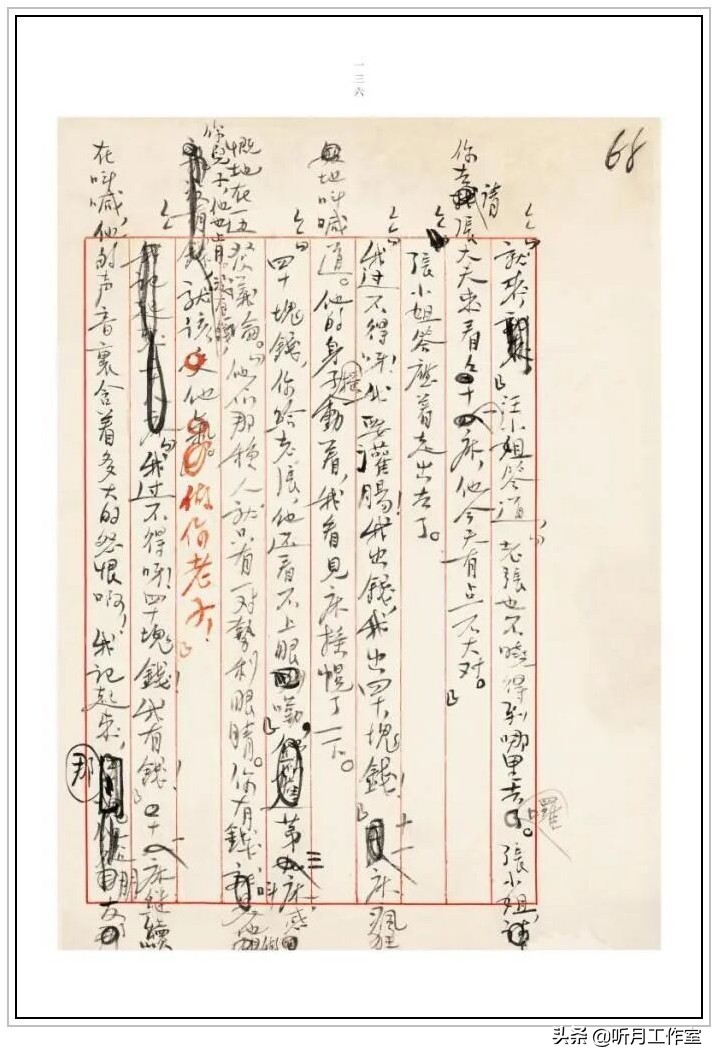 一三六
68
「就來，」汪小姐答道，「老張也不曉得到哪里去了。囉張小姐，請
你去請張大夫來看看四十床，他今天有点不大对。」
張小姐答應着走出去了。
「我过不得呀！我要灌腸！我出錢，我出四十塊錢！」十一床瘋狂
地叫喊道。他的身子搖動着，我看見床搖幌了一下。
「四十塊錢，你給老張，他还看不上眼嘞，」第三床感
慨地在一边發議論。「他们那種人就只有一对势利眼睛。你有錢，
你兒子，他也肯
就該 他 做你老子！」
「我过不得呀！四十塊錢！我有錢！」十一床继續
在叫喊，他的声音裏含着多大的怨恨啊！我記起來，那 朋友
头条 @听月工作室